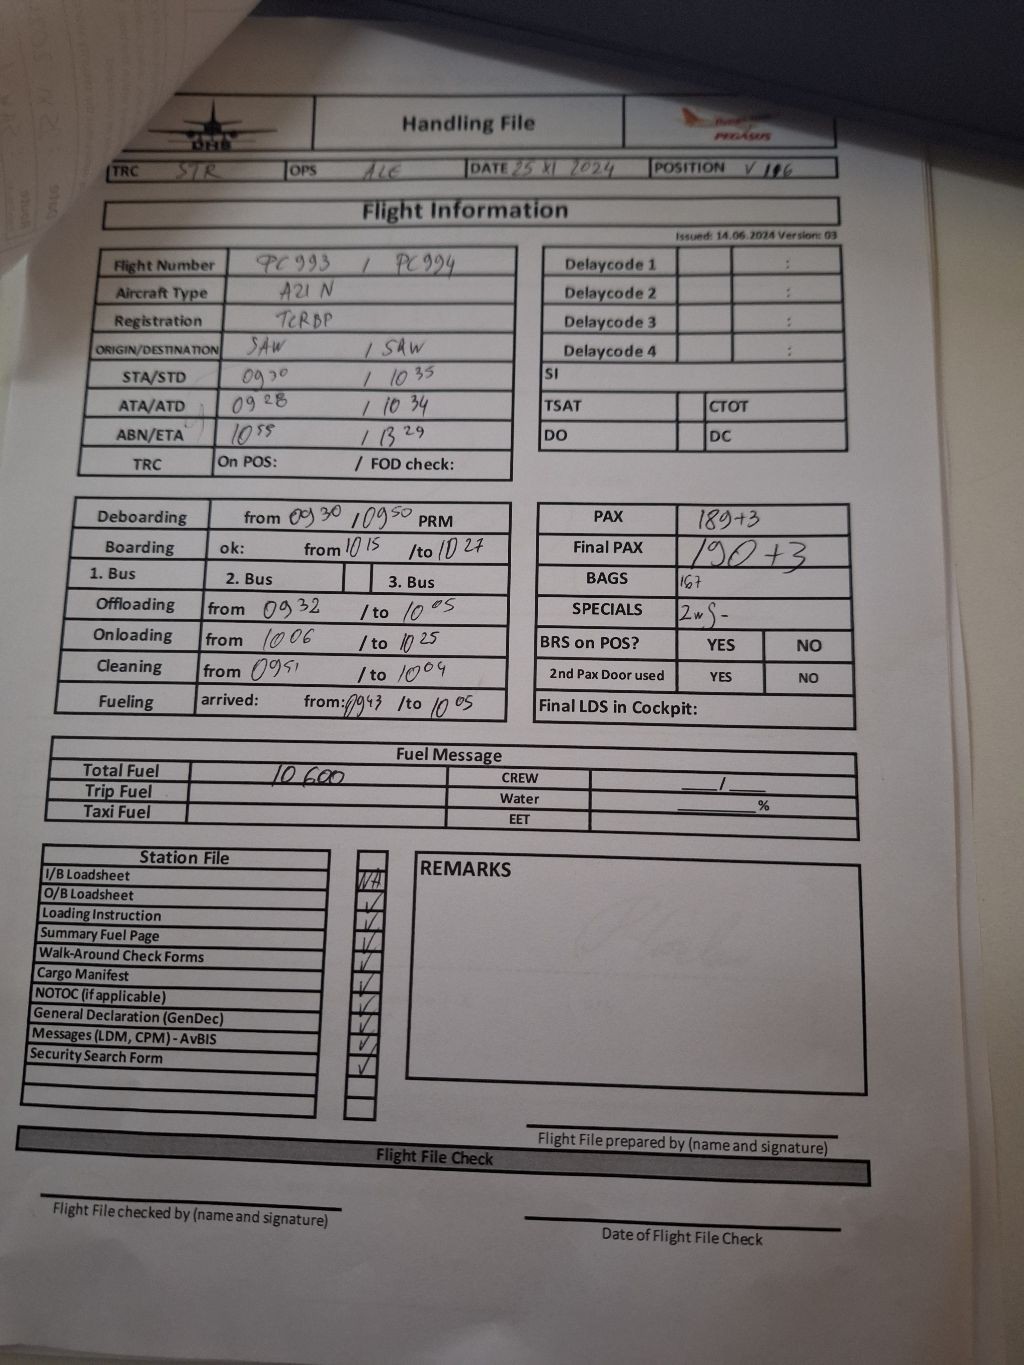 DHS
Handling File
PEGASUS
TRC STR OPS ALE DATE 25 XI 2024 POSITION V 106
Flight Information
Issued: 14.06.2024 Version: 03
Flight Number PC 993 / PC 994
Aircraft Type A21 N
Registration TCRBP
ORIGIN/DESTINATION SAW / SAW
STA/STD 0930 / 1035
ATA/ATD 0928 / 1034
ABN/ETA 1055 / 1329
TRC On POS: / FOD check:
Delaycode 1 :
Delaycode 2 :
Delaycode 3 :
Delaycode 4 :
SI
TSAT CTOT
DO DC
Deboarding from 0930 / 0950 PRM
Boarding ok: from 1015 /to 1027
1. Bus 2. Bus 3. Bus
Offloading from 0932 / to 1005
Onloading from 1006 / to 1025
Cleaning from 0951 / to 1004
Fueling arrived: from: 0943 /to 1005
PAX 189+3
Final PAX 190+3
BAGS 167
SPECIALS
BRS on POS? YES NO
2nd Pax Door used YES NO
Final LDS in Cockpit:
Fuel Message
Total Fuel 10 600 CREW ____/____
Trip Fuel Water ________%
Taxi Fuel EET
Station File
I/B Loadsheet NA
O/B Loadsheet ✓
Loading Instruction ✓
Summary Fuel Page ✓
Walk-Around Check Forms ✓
Cargo Manifest ✓
NOTOC (if applicable) ✓
General Declaration (GenDec) ✓
Messages (LDM, CPM) - AvBIS ✓
Security Search Form ✓
REMARKS
Flight File prepared by (name and signature)
Flight File Check
Flight File checked by (name and signature)
Date of Flight File Check